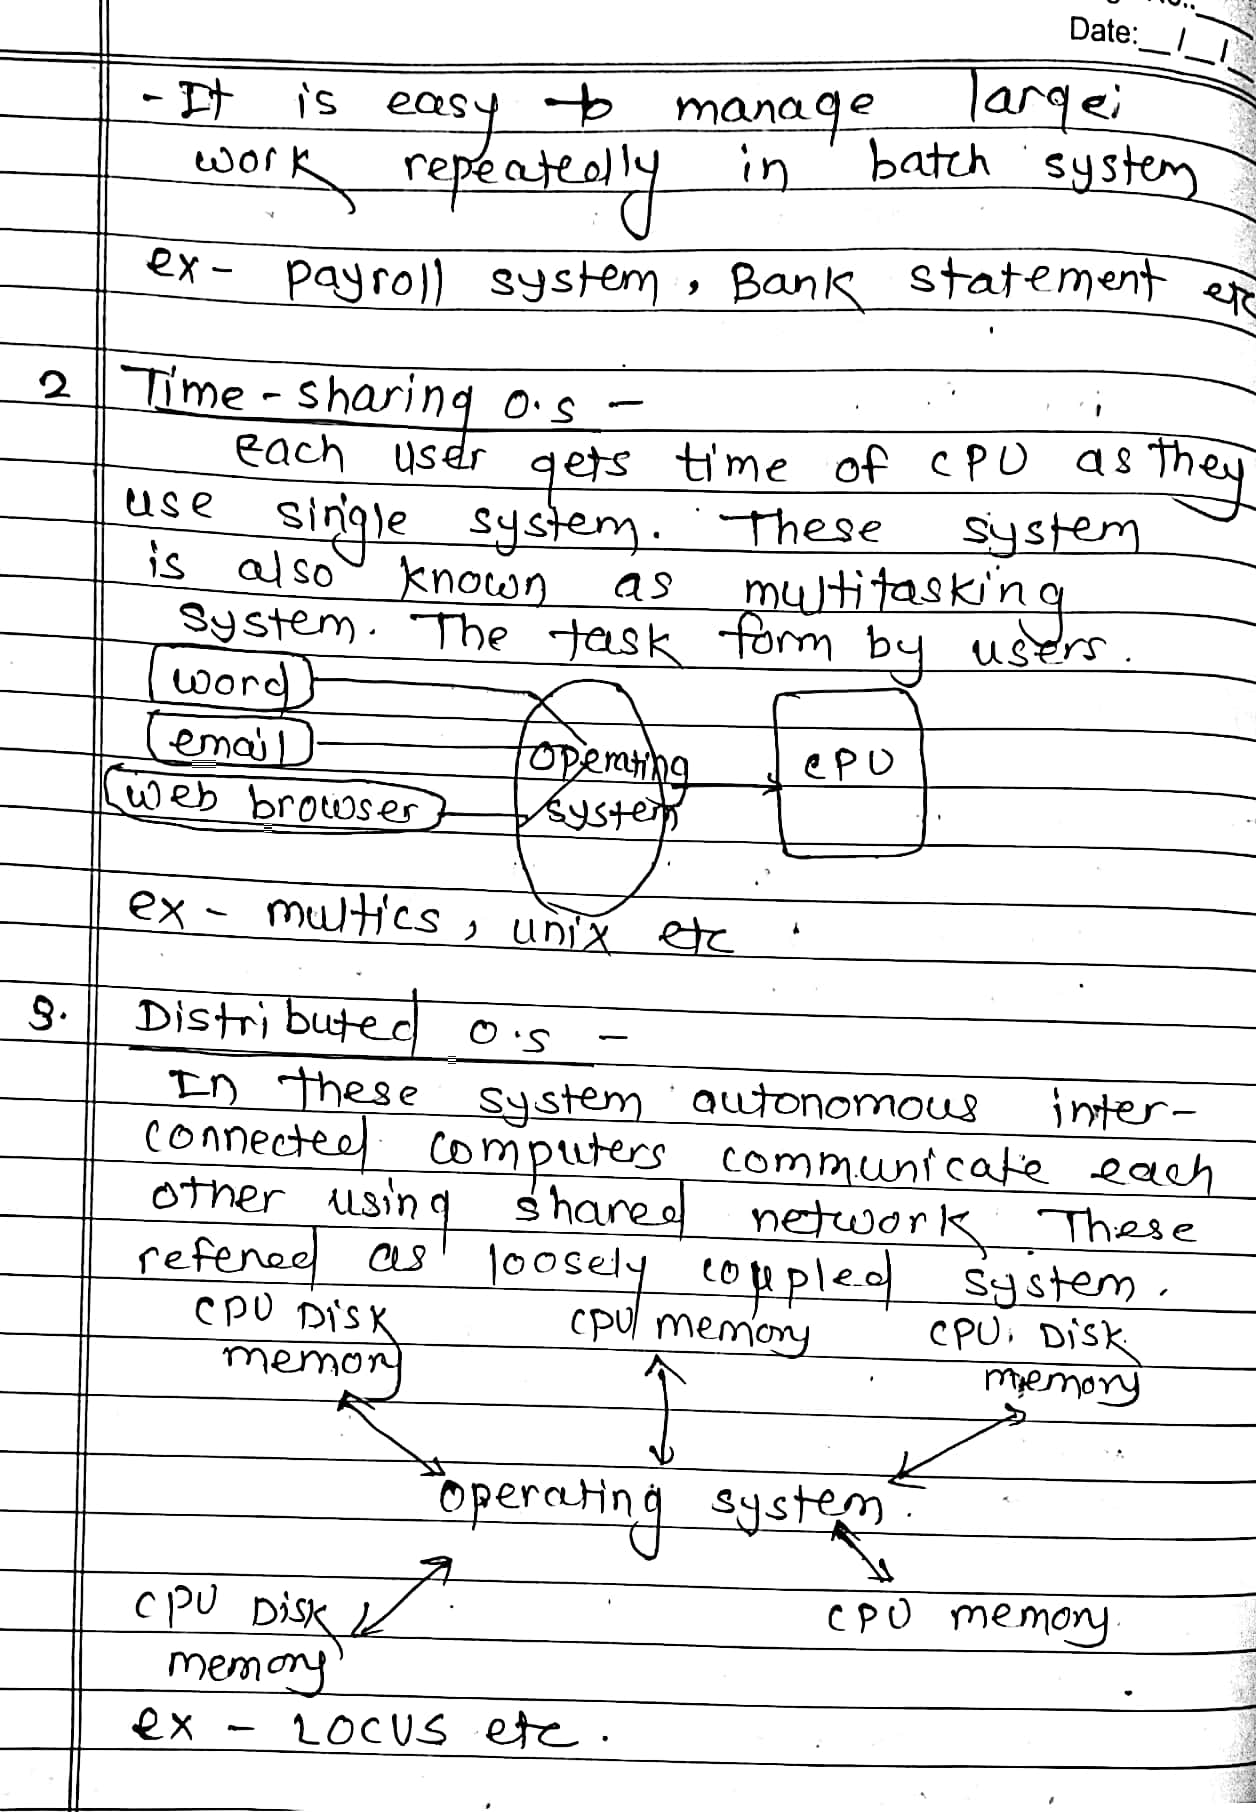 Date:
- It is easy to manage large
work repeatedly in batch system
ex - payroll system, Bank statement etc
2 Time - sharing o.s -
each user gets time of CPU as they
use single system. These system
is also known as multitasking
system. The task form by users.
word
email
web browser
operating
system
CPU
ex - multics, unix etc
3. Distributed o.s -
In these system autonomous inter-
connected computers communicate each
other using shared network These
refered as loosely coupled system.
CPU Disk
memory
CPU memory
CPU Disk
memory
operating system.
CPU Disk
memory
CPU memory.
ex - LOCUS etc.